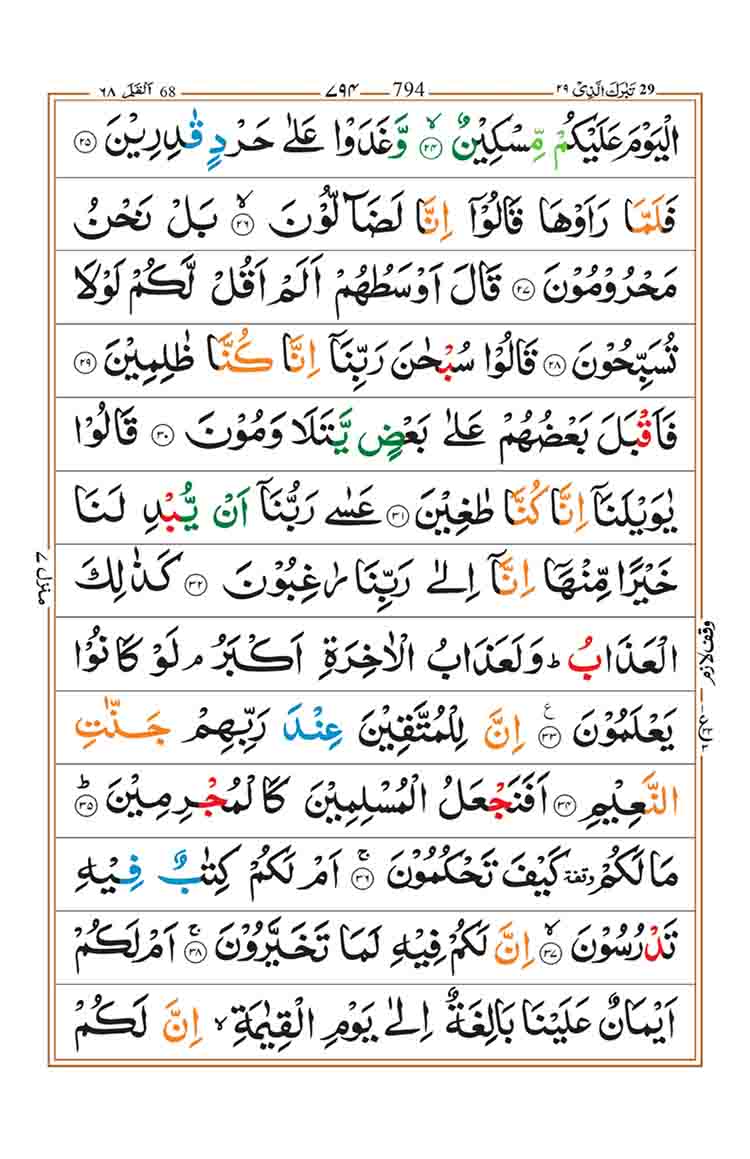 29 تَبٰرَكَ الَّذِیْ ٢٩
794 ٧٩۴
68 اَلْقَلَم ٦٨
الْیَوْمَ عَلَیْكُمْ مِّسْكِیْنٌ ۙ﴿۲۴﴾ وَّ غَدَوْا عَلٰی حَرْدٍ قٰدِرِیْنَ ﴿۲۵﴾
فَلَمَّا رَاَوْهَا قَالُوْۤا اِنَّا لَضَآلُّوْنَ ۙ﴿۲۶﴾ بَلْ نَحْنُ
مَحْرُوْمُوْنَ ﴿۲۷﴾ قَالَ اَوْسَطُهُمْ اَلَمْ اَقُلْ لَّكُمْ لَوْلَا
تُسَبِّحُوْنَ ﴿۲۸﴾ قَالُوْا سُبْحٰنَ رَبِّنَاۤ اِنَّا كُنَّا ظٰلِمِیْنَ ﴿۲۹﴾
فَاَقْبَلَ بَعْضُهُمْ عَلٰی بَعْضٍ یَّتَلَاوَمُوْنَ ﴿۳۰﴾ قَالُوْا
یٰوَیْلَنَاۤ اِنَّا كُنَّا طٰغِیْنَ ﴿۳۱﴾ عَسٰی رَبُّنَاۤ اَنْ یُّبْدِلَنَا
خَیْرًا مِّنْهَاۤ اِنَّاۤ اِلٰی رَبِّنَا رٰغِبُوْنَ ﴿۳۲﴾ كَذٰلِكَ
الْعَذَابُ ؕ وَلَعَذَابُ الْاٰخِرَةِ اَكْبَرُ ۘ لَوْ كَانُوْا
یَعْلَمُوْنَ ﴿۳۳﴾ۧ اِنَّ لِلْمُتَّقِیْنَ عِنْدَ رَبِّهِمْ جَنّٰتِ
النَّعِیْمِ ﴿۳۴﴾ اَفَنَجْعَلُ الْمُسْلِمِیْنَ كَالْمُجْرِمِیْنَ ؕ﴿۳۵﴾
مَا لَكُمْ وقفة كَیْفَ تَحْكُمُوْنَ ۚ﴿۳۶﴾ اَمْ لَكُمْ كِتٰبٌ فِیْهِ
تَدْرُسُوْنَ ۙ﴿۳۷﴾ اِنَّ لَكُمْ فِیْهِ لَمَا تَخَیَّرُوْنَ ۚ﴿۳۸﴾ اَمْ لَكُمْ
اَیْمَانٌ عَلَیْنَا بَالِغَةٌ اِلٰی یَوْمِ الْقِیٰمَةِ ۙ اِنَّ لَكُمْ
وقف لازم
منزل ٧